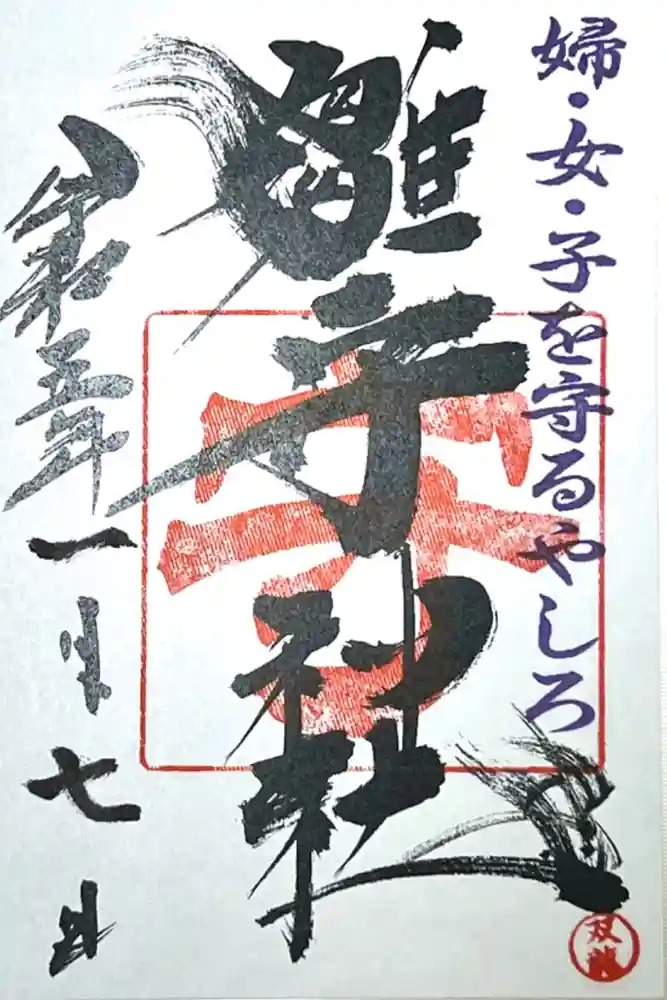 婦・女・子を守るやしろ
雛守神社
令和五年一月七日
双龍